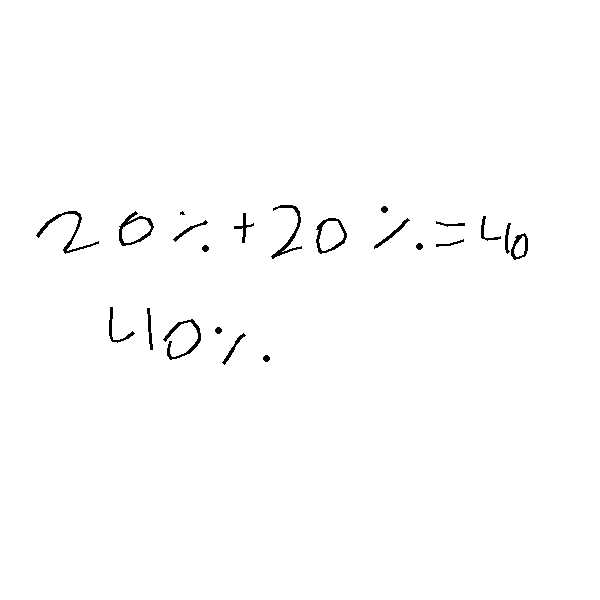 20%+20%=40
40%